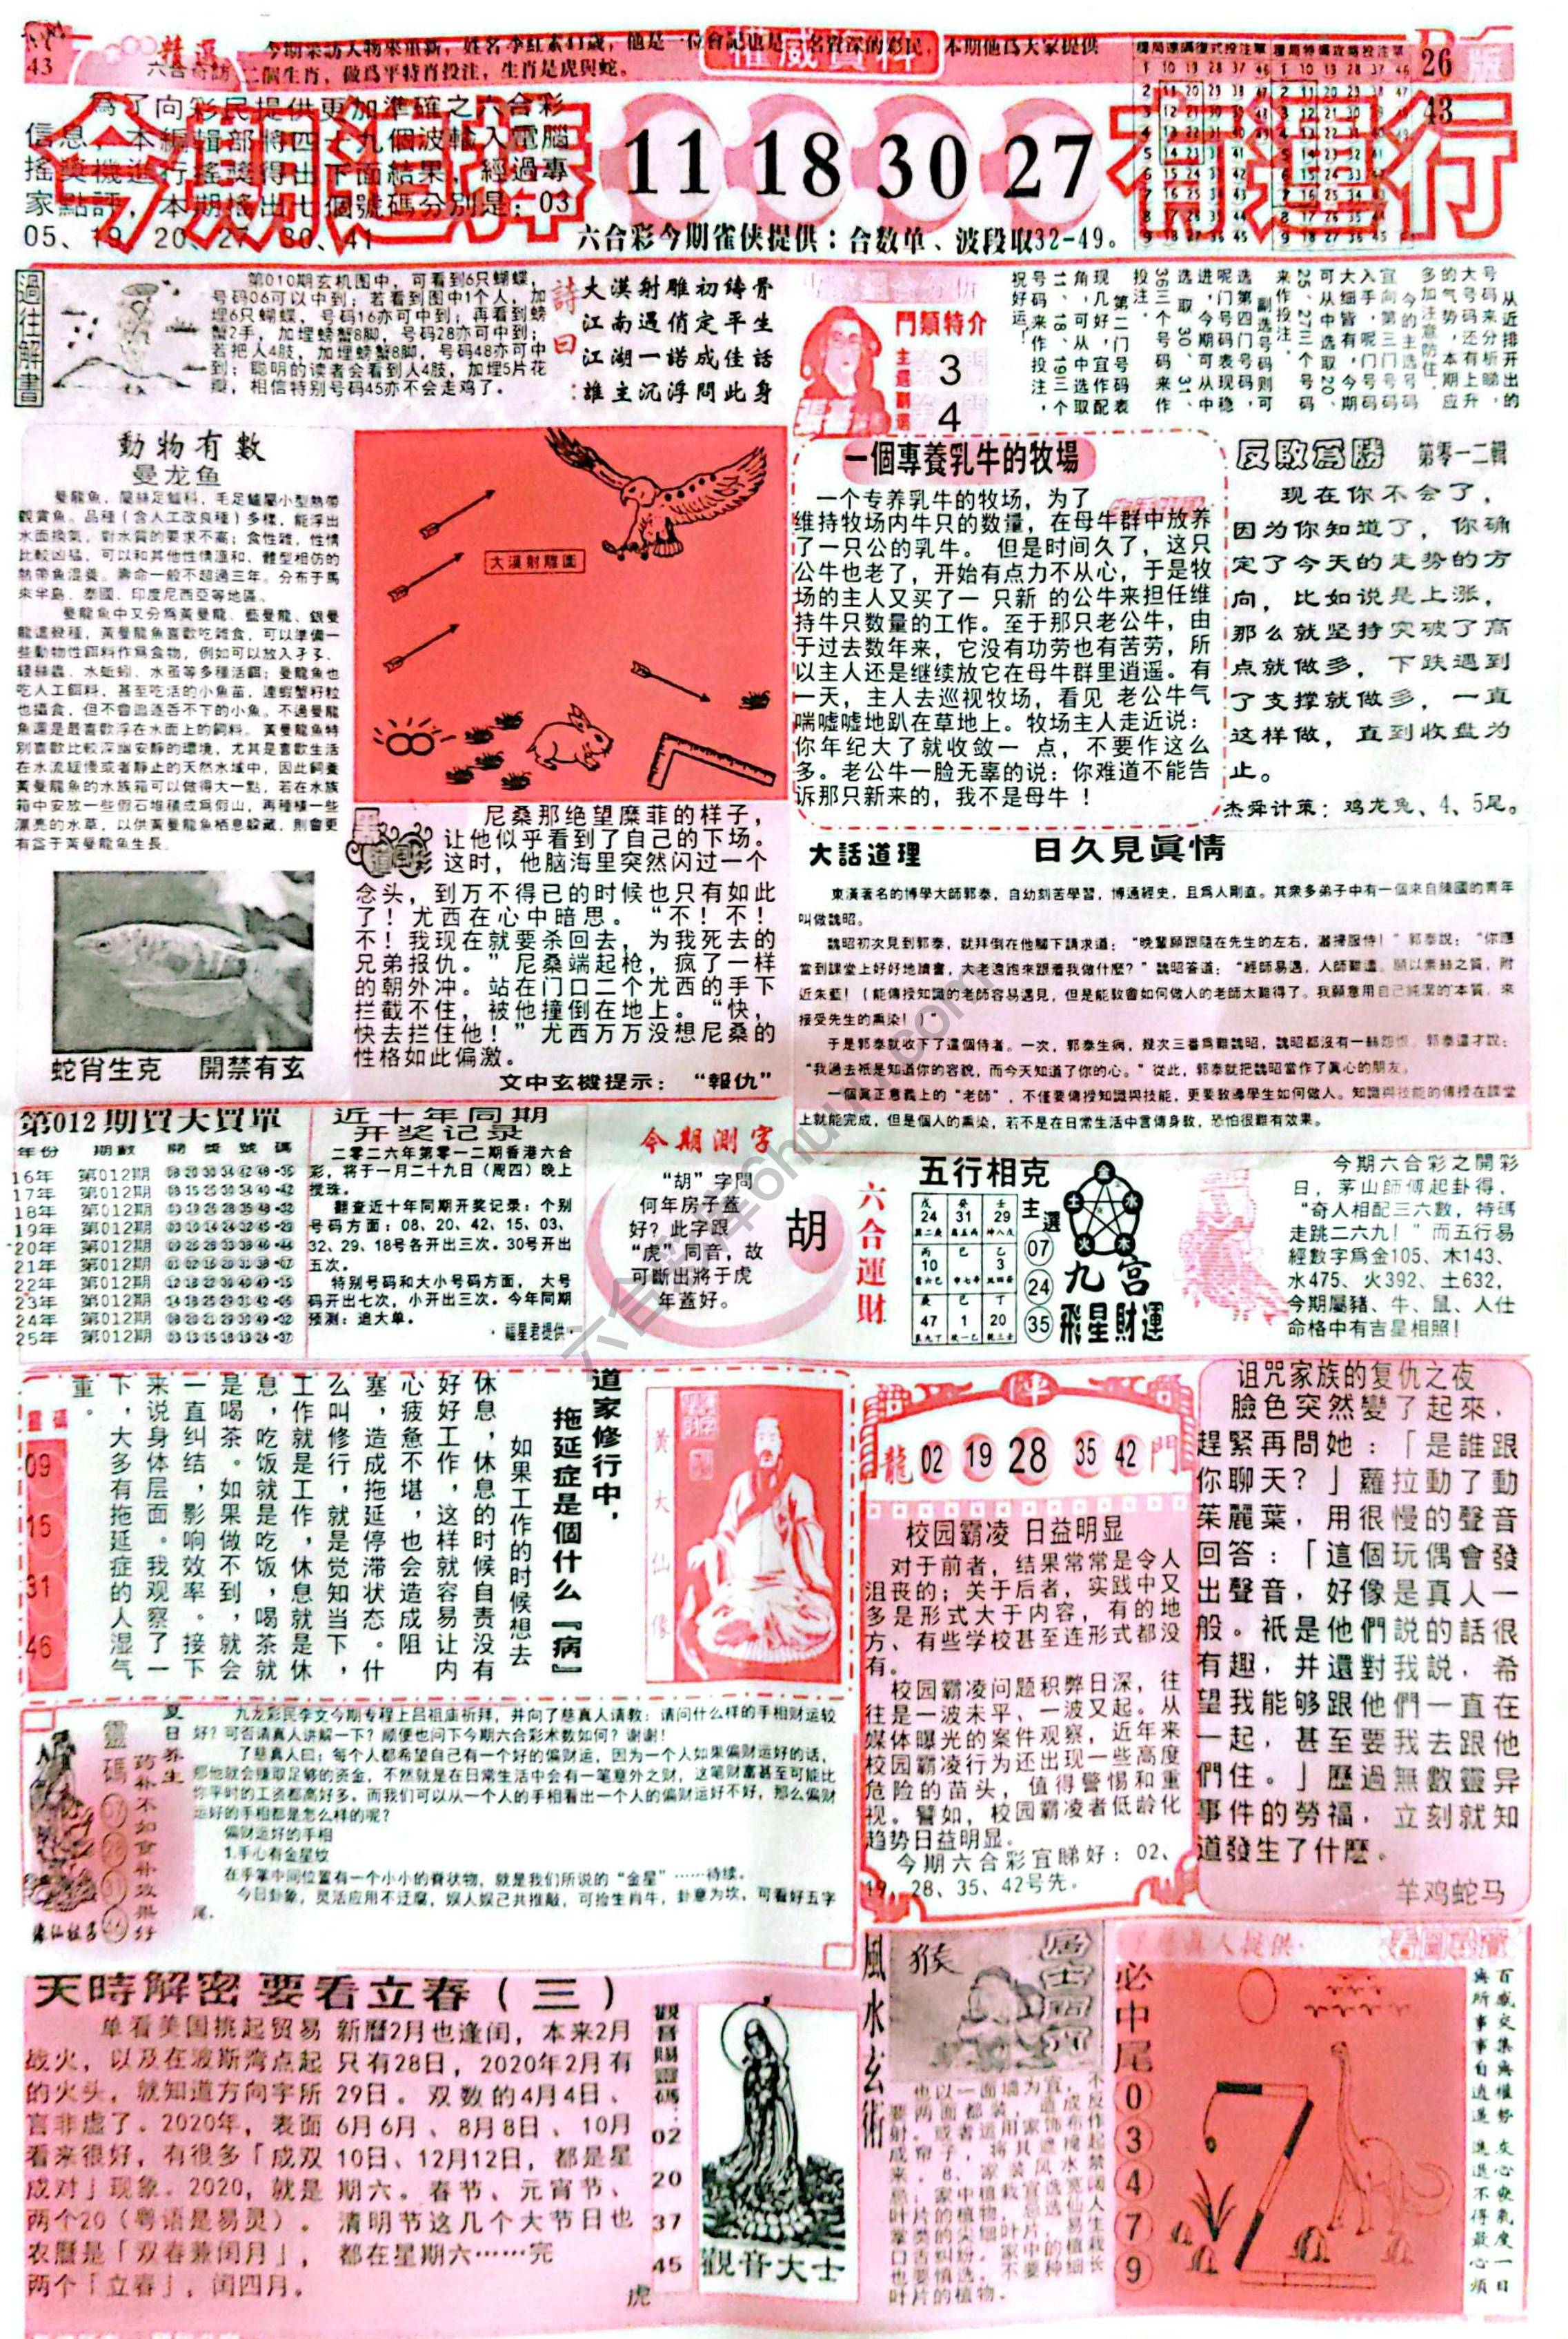 精選
六合奇訪
今期采訪人物來重新，姓名李紅素41歲，他是一位會記也是一名資深的彩民，本期他爲大家提供
二個生肖，做爲平特肖投注，生肖是虎與蛇。
權威資料
43
26
版
43
爲了向彩民提供更加準確之六合彩
信息，本編輯部將四十九個波輸入電腦
搖獎機進行搖獎得出下面結果，經過專
家點評，本期搖出七個號碼分別是：03
05、19、20、27、30、41
今期選擇
11 18 30 27
有運行
六合彩今期雀俠提供：合数单、波段取32-49。
過往解書
第010期玄机图中，可看到6只蝴蝶，
号码06可以中到；若看到图中1个人，加
埋6只蝴蝶，号码16亦可中到；再看到螃
蟹2手，加埋螃蟹8脚，号码28亦可中到；
若把人4肢，加埋螃蟹8脚，号码48亦可中
到；聪明的读者会看到人4肢，加埋5片花
瓣，相信特别号码45亦不会走鸡了。
詩曰：
大漠射雕初鑄骨
江南遇俏定平生
江湖一諾成佳話
誰主沉浮問此身
門類特介
主選
3
副選
4
从近排开出的
号码来分析睇，
大号码还有上升
的气势，本期应
多加注意防住。
今的主选号码
宜向第三门号码
入手，呢门号码
大细皆有，今期
可从中选取20、
25、27三个号码
来作投注。
副选号码则可
选第四门号码，
呢门号码表现稳
进，今期可从中
选取30、31、
36三个号码来作
投注。
第二门号码表
现几好，宜作配
角，可从中选取
11、18、19三个
号码来作投注，
祝好运！
動物有數
曼龙鱼
曼龍魚，屬絲足鱸科，毛足鱸屬小型熱帶
觀賞魚。品種（含人工改良種）多樣，能浮出
水面換氣，對水質的要求不高；食性雜，性情
比較凶猛，可以和其他性情溫和、體型相仿的
熱帶魚混養。壽命一般不超過三年。分布于馬
來半島、泰國、印度尼西亞等地區。
曼龍魚中又分爲黃曼龍、藍曼龍、銀曼
龍這幾種，黃曼龍魚喜歡吃雜食，可以準備一
些動物性餌料作爲食物，例如可以放入孑孓、
線絲蟲、水蚯蚓、水蚤等多種活餌；曼龍魚也
吃人工餌料，甚至吃活的小魚苗，連蝦蟹籽粒
也攝食，但不會追逐吞不下的小魚。不過曼龍
魚還是最喜歡浮在水面上的飼料。黃曼龍魚特
別喜歡比較深幽安靜的環境，尤其是喜歡生活
在水流緩慢或者靜止的天然水域中，因此飼養
黃曼龍魚的水族箱可以做得大一點，若在水族
箱中安放一些假石堆積成爲假山，再種植一些
漂亮的水草，以供黃曼龍魚栖息躲藏，則會更
有益于黃曼龍魚生長。
蛇肖生克 開禁有玄
大漠射雕圖
尼桑那绝望糜菲的样子，
让他似乎看到了自己的下场。
这时，他脑海里突然闪过一个
念头，到万不得已的时候也只有如此
了！尤西在心中暗思。“不！不！
不！我现在就要杀回去，为我死去的
兄弟报仇。”尼桑端起枪，疯了一样
的朝外冲。站在门口二个尤西的手下
拦截不住，被他撞倒在地上。“快，
快去拦住他！”尤西万万没想尼桑的
性格如此偏激。
文中玄機提示：“報仇”
一個專養乳牛的牧場
一个专养乳牛的牧场，为了
维持牧场内牛只的数量，在母牛群中放养
了一只公的乳牛。 但是时间久了，这只
公牛也老了，开始有点力不从心，于是牧
场的主人又买了一 只新 的公牛来担任维
持牛只数量的工作。至于那只老公牛，由
于过去数年来，它没有功劳也有苦劳，所
以主人还是继续放它在母牛群里逍遥。有
一天，主人去巡视牧场，看见 老公牛气
喘嘘嘘地趴在草地上。牧场主人走近说：
你年纪大了就收敛一 点，不要作这么
多。老公牛一脸无辜的说：你难道不能告
诉那只新来的，我不是母牛！
反敗爲勝 第零一二輯
现在你不会了，
因为你知道了，你确
定了今天的走势的方
向，比如说是上涨，
那么就坚持突破了高
点就做多，下跌遇到
了支撑就做多，一直
这样做，直到收盘为
止。
杰舜计策：鸡龙兔、4、5尾。
大話道理 日久見真情
東漢著名的博學大師郭泰，自幼刻苦學習，博通經史，且爲人剛直。其衆多弟子中有一個來自陳國的青年
叫做魏昭。
魏昭初次見到郭泰，就拜倒在他腳下請求道：“晚輩願跟隨在先生的左右，灑掃服侍！”郭泰說：“你應
當到課堂上好好地讀書，大老遠跑來跟着我做什麼？”魏昭答道：“經師易遇，人師難遭，願以素絲之質，附
近朱藍！（能傳授知識的老師容易遇見，但是能教會如何做人的老師太難得了。我願意用自己純潔的本質，來
接受先生的熏染！）”
于是郭泰就收下了這個侍者。一次，郭泰生病，幾次三番爲難魏昭，魏昭都沒有一絲怨恨，郭泰這才說：
“我過去祇是知道你的容貌，而今天知道了你的心。”從此，郭泰就把魏昭當作了真心的朋友。
一個真正意義上的“老師”，不僅要傳授知識與技能，更要教導學生如何做人。知識與技能的傳授在課堂
上就能完成，但是個人的熏染，若不是在日常生活中言傳身教，恐怕很難有效果。
第012期買大買單
年份 期數 開獎號碼
16年 第012期
17年 第012期
18年 第012期
19年 第012期
20年 第012期
21年 第012期
22年 第012期
23年 第012期
24年 第012期
25年 第012期
近十年同期
开奖记录
二零二六年第零一二期香港六合
彩，将于一月二十九日（周四）晚上
搅珠。
翻查近十年同期开奖记录：个别
号码方面：08、20、42、15、03、
32、29、18号各开出三次。30号开出
五次。
特别号码和大小号码方面，大号
码开出七次，小开出三次。今年同期
预测：追大单。
·福星君提供·
今期測字
“胡”字問
何年房子蓋
好？此字跟
“虎”同音，故
可斷出將于虎
年蓋好。
胡
六合運財
五行相克
戊 癸 壬
24 31 29
丙 己 乙
10 3
庚 己 丁
47 1 20
主選
07
24
35
金
土 水
火 木
九宮
飛星財運
今期六合彩之開彩
日，茅山師傅起卦得，
“奇人相配三六數，特碼
走跳二六九！”而五行易
經數字爲金105、木143、
水475、火392、土632，
今期屬豬、牛、鼠、人仕
命格中有吉星相照！
靈碼
09
15
31
46
道家修行中，
拖延症是個什么『病』
如果工作的时候想去
休息，休息的时候自责没有
好好工作，这样就容易让内
心疲惫不堪，也会造成阻
塞，造成拖延停滞状态。什
么叫修行，就是觉知当下，
工作就是工作，休息就是休
息，吃饭就是吃饭，喝茶就
是喝茶。如果做不到，就会
一直纠结，影响效率。接下
来说身体层面。我观察了一
下，大多有拖延症的人湿气
重。
黃大仙像
龍 門
02 19 28 35 42
校园霸凌 日益明显
对于前者，结果常常是令人
沮丧的；关于后者，实践中又
多是形式大于内容，有的地
方、有些学校甚至连形式都没
有。
校园霸凌问题积弊日深，往
往是一波未平、一波又起。从
媒体曝光的案件观察，近年来
校园霸凌行为还出现一些高度
危险的苗头，值得警惕和重
视。譬如，校园霸凌者低龄化
趋势日益明显。
今期六合彩宜睇好：02、
19、28、35、42号先。
诅咒家族的复仇之夜
臉色突然變了起來，
趕緊再問她：「是誰跟
你聊天？」蘿拉動了動
茱麗葉，用很慢的聲音
回答：「這個玩偶會發
出聲音，好像是真人一
般。祇是他們說的話很
有趣，并還對我説，希
望我能够跟他們一直在
一起，甚至要我去跟他
們住。」歷過無數靈异
事件的勞福，立刻就知
道發生了什麽。
羊鸡蛇马
夏日养生
药补不如食补效果好
靈碼
九龙彩民李文今期专程上吕祖庙祈拜，并向了慈真人请教：请问什么样的手相财运较
好？可否请真人讲解一下？顺便也问下今期六合彩术数如何？谢谢！
了慈真人曰：每个人都希望自己有一个好的偏财运，因为一个人如果偏财运好的话，
那他就会赚取足够的资金，不然就是在日常生活中会有一笔意外之财，这笔财富甚至可能比
你平时的工资都高好多。而我们可以从一个人的手相看出一个人的偏财运好不好，那么偏财
运好的手相都是怎么样的呢？
偏财运好的手相
1.手心有金星纹
在手掌中间位置有一个小小的脊状物，就是我们所说的“金星”……待续。
今日卦象，灵活应用不迂腐，娱人娱己共推敲，可捡生肖牛，卦意为坎，可看好五字
尾。
天時解密 要看立春（三）
单看美国挑起贸易
战火，以及在波斯湾点起
的火头，就知道方向字所
言非虚了。2020年，表面
看来很好，有很多「成双
成对」现象。2020，就是
两个20（粤语是易灵）。
农曆是「双春兼闰月」，
两个「立春」，闰四月。
新曆2月也逢闰，本来2月
只有28日，2020年2月有
29日。双数的4月4日、
6月6月、8月8日、10月
10日、12月12日，都是星
期六。春节、元宵节、
清明节这几个大节日也
都在星期六……完
虎
觀音賜靈碼：
02
20
37
45
觀音大士
風水玄術
猴
也以一面墙为宜，不
要两面都装，造成反
射。或者运用家饰布作
成帘子，将其遮掩起
来。8、家装风水禁
忌：家中植栽宜选宽阔
叶片的植物，忌选仙人
掌类的尖细叶片，易生
口舌纠纷，家中的植栽
也要慎选，不要种细长
叶片的植物。
必中尾
0
3
4
7
9
真人提供·
百感交集無權勢
無所事事自逍遙
六合彩库6huw.com